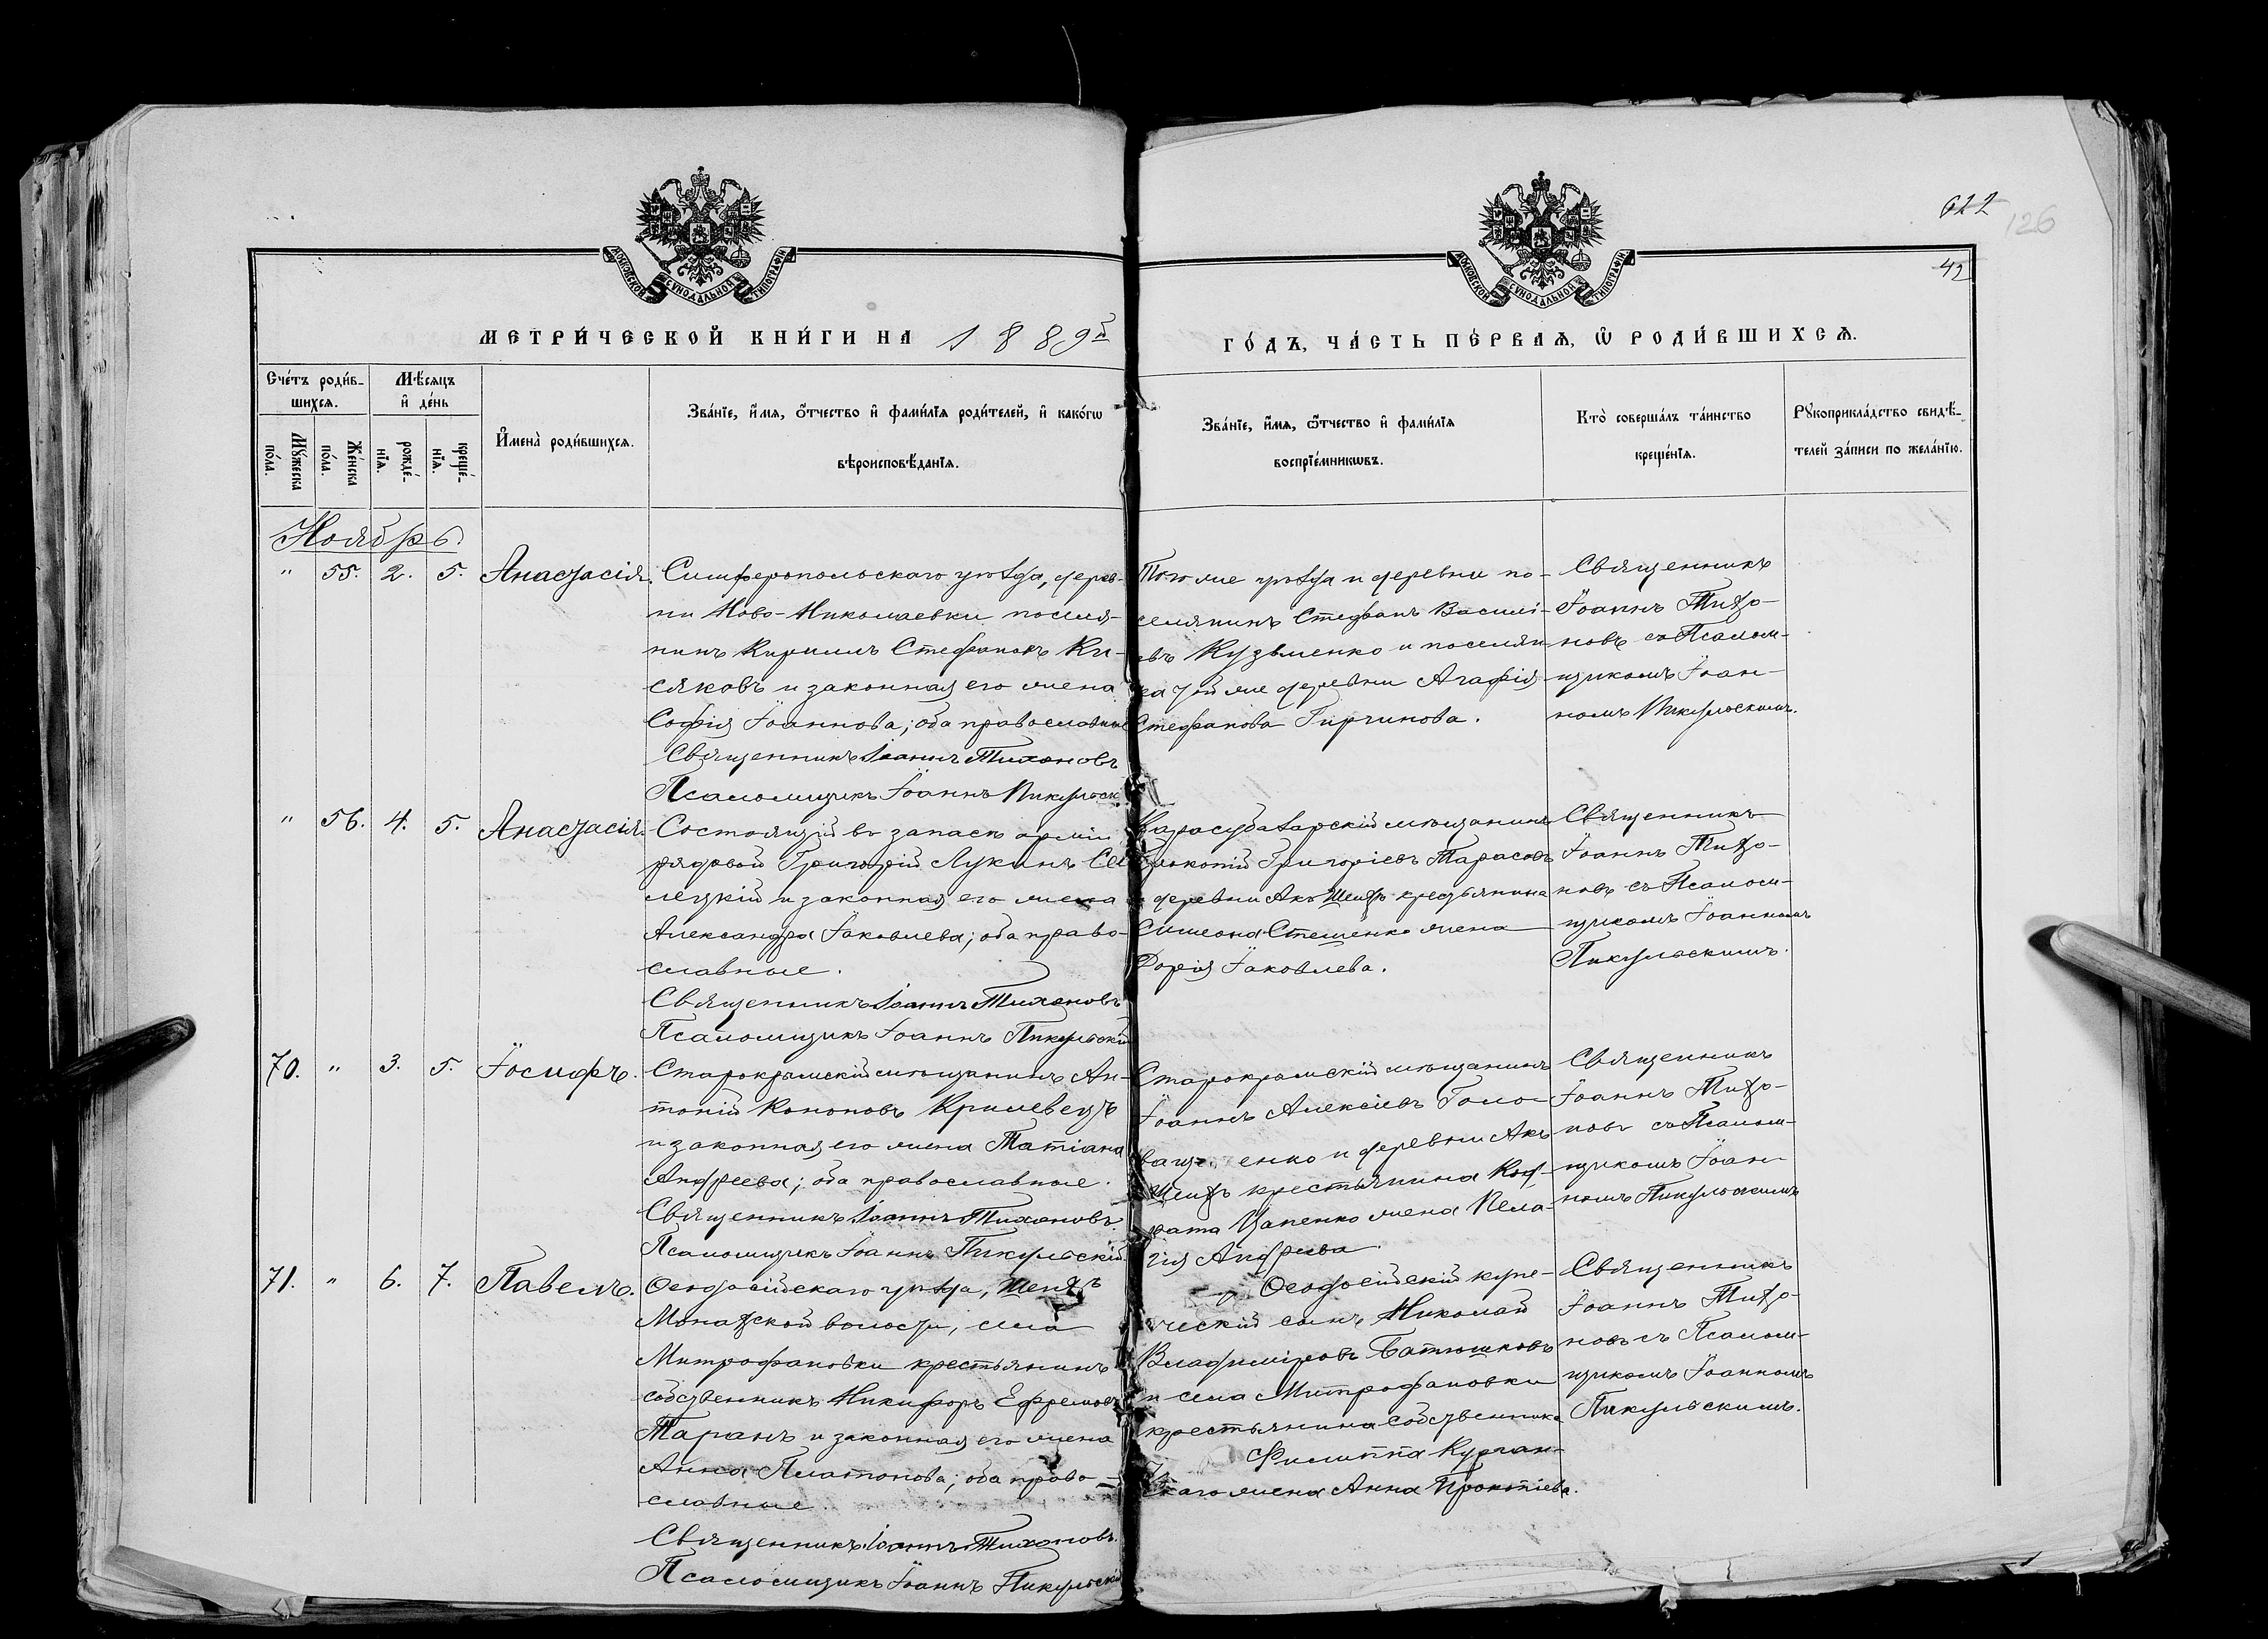 622
126
42
МОСКОВСКОЙ СУНОДАЛЬНОЙ ТИПОГРАФІИ
МОСКОВСКОЙ СУНОДАЛЬНОЙ ТИПОГРАФІИ
МЕТРИ́ЧЕСКОЙ КНИ́ГИ НА 1889й
ГО́ДЪ, ЧА́СТЬ ПЕ́РВАѦ, Ѿ РОДИ́ВШИХСѦ.
Сче́тъ роди́в-
шихсѧ.
Мѣ́сѧцъ
и҆ де́нь
Мꙋ́жеска
по́ла.
Же́нска
по́ла.
рожде́-
нїѧ.
креще́-
нїѧ.
И҆мена̀ роди́вшихсѧ.
Зва́нїе, и҆́мѧ, ѻ҆́тчество и҆ фами́лїѧ роди́телей, и҆ како́гѡ
вѣроисповѣ́данїѧ.
Зва́нїе, и҆́мѧ, ѻ҆́тчество и҆ фами́лїѧ
воспрїе́мникѡвъ.
Кто̀ соверша́лъ та́инство
креще́нїѧ.
Рꙋкоприкла́дство свидѣ́-
телей за́писи по жела́нїю.
Ноябрь.
" 55. 2. 5. Анастасія.
Симферопольскаго уѣзда, дерев-
ни Ново-Николаевки поселя-
нинъ Кириллъ Стефановъ Ки-
сяковъ и законная его жена
Софія Іоаннова; оба православные
Священникъ Іоаннъ Тихоновъ
Псаломщикъ Іоаннъ Пикульск
Того же уѣзда и деревни по-
селянинъ Стефанъ Василі-
евъ Кузьменко и поселян
ка той же деревни Агафія
Стефанова Гирчинова.
Священникъ
Іоаннъ Тихо-
новъ съ Псалом-
щикомъ Іоан-
номъ Пикульскимъ.
" 56. 4. 5. Анастасія.
Состоящій въ запасѣ арміи
рядовой Григорій Лукинъ Се
лецкій и законная его жена
Александра Іаковлева; оба право-
славные.
Священникъ Іоаннъ Тихоновъ
Псаломщикъ Іоаннъ Пикульскій
Карасубазарскій мѣщанинъ
Прокопій Григоріевъ Тарасовъ
и деревни Акъ Шеихъ крестьянина
Симеона Стешенко жена
Дарія Іаковлева.
Священникъ
Іоаннъ Тихо-
новъ съ Псалом-
щикомъ Іоанномъ
Пикульскимъ.
70. " 3. 5. Іосифъ.
Старокрымскій мѣщанинъ Ан-
тоній Кононовъ Крилевецъ
и законная его жена Татіана
Андреева; оба православные.
Священникъ Іоаннъ Тихоновъ.
Псаломщикъ Іоаннъ Пикульскій.
Старокрымскій мѣщанинъ
Іоаннъ Алексіевъ Голо-
ващенко и деревни Акъ
Шеихъ крестьянина Код-
рата Цапенко жена Пела-
гія Андреева.
Священникъ
Іоаннъ Тихо-
новъ съ Псалом-
щикомъ Іоан-
номъ Пикульскимъ
71. " 6. 7. Павелъ.
Ѳеодосійскаго уѣзда, Шеихъ
Монахской волости, села
Митрофановки крестьянинъ
собственникъ Никифоръ Ефремовъ
Таранъ и законная его жена
Анна Платонова; оба право-
славные
Священникъ Іоаннъ Тихоновъ.
Псаломщикъ Іоаннъ Пикульскій
Ѳеодосійскій купе-
ческій сынъ Николай
Владиміровъ Батюшковъ
и села Митрофановки
крестьянина собственника
Филиппа Курган-
скаго жена Анна Прокопіева.
Священникъ
Іоаннъ Тихо-
новъ съ Псалом-
щикомъ Іоанномъ
Пикульскимъ.